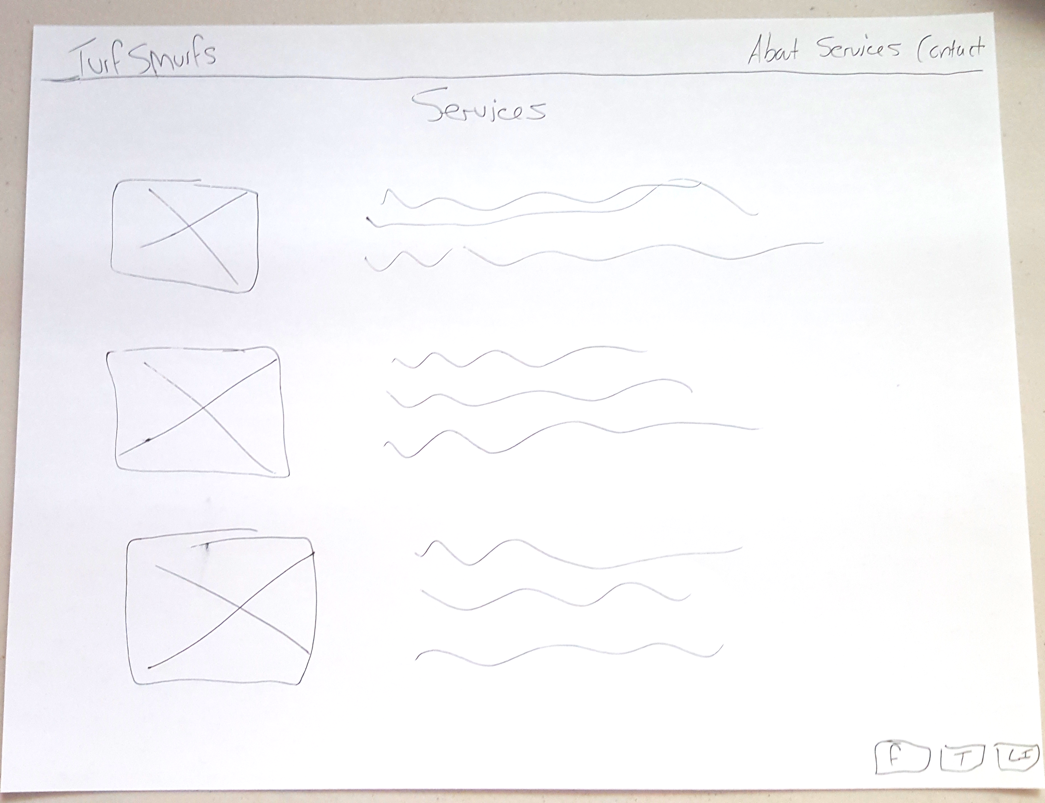 Turf Smurfs
About Services Contact
Services
F T LI